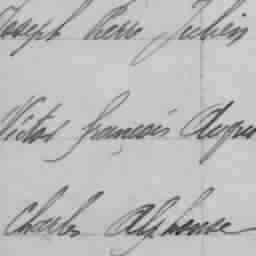 Joseph Pierre Julien
Victor françois Augus
Charles Alphonse